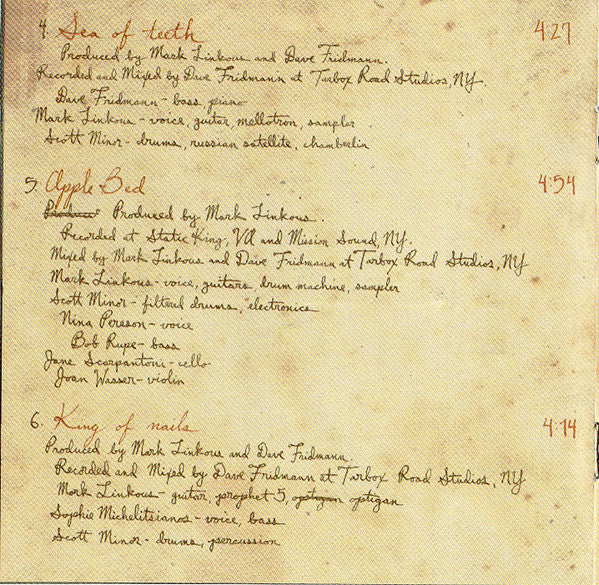 4. Sea of teeth 4:27
Produced by Mark Linkous and Dave Fridmann.
Recorded and Mixed by Dave Fridmann at Tarbox Road Studios, NY.
Dave Fridmann - bass, piano
Mark Linkous - voice, guitar, mellotron, sampler
Scott Minor - drums, russian satellite, chamberlin
5. Apple Bed 4:54
Produced by Mark Linkous.
Recorded at Static King, VA and Mission Sound, NY.
Mixed by Mark Linkous and Dave Fridmann at Tarbox Road Studios, NY
Mark Linkous - voice, guitars, drum machine, sampler
Scott Minor - filtered drums, electronics
Nina Persson - voice
Bob Rupe - bass
Jane Scarpantoni - cello
Joan Wasser - violin
6. King of nails 4:14
Produced by Mark Linkous and Dave Fridmann.
Recorded and Mixed by Dave Fridmann at Tarbox Road Studios, NY
Mark Linkous - guitar, prophet 5, optigan
Sophie Michelitsianos - voice, bass
Scott Minor - drums, percussion